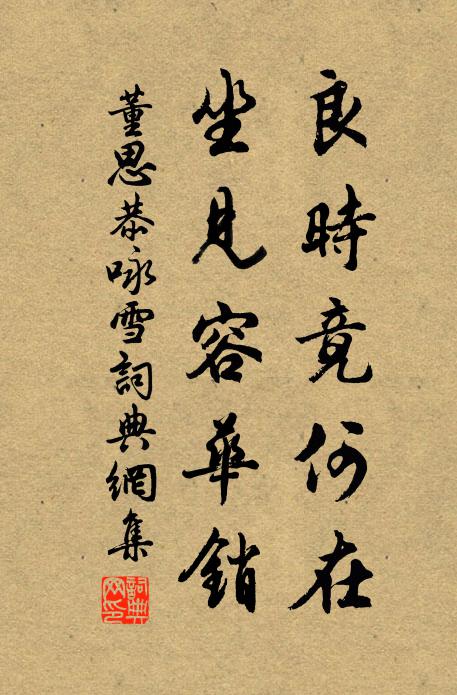 良時竟何在
坐見容華銷
董思恭咏雪詞典網集
詞典
网印